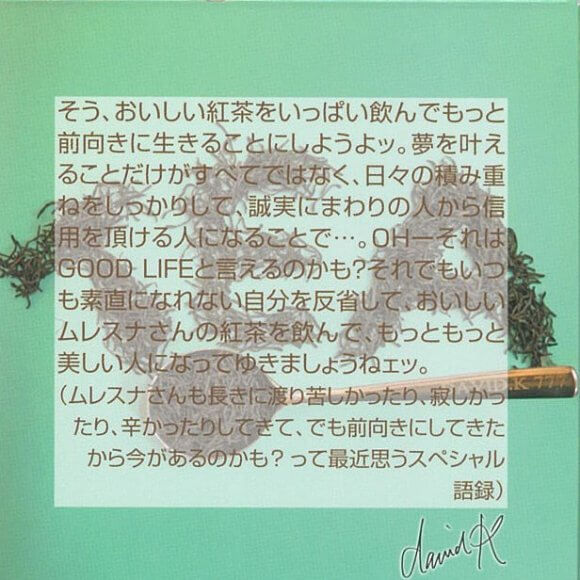 そう、おいしい紅茶をいっぱい飲んでもっと
前向きに生きることにしようよッ。夢を叶え
ることだけがすべてではなく、日々の積み重
ねをしっかりして、誠実にまわりの人から信
用を頂ける人になることで…。OHーそれは
GOOD LIFEと言えるのかも?それでもいつ
も素直になれない自分を反省して、おいしい
ムレスナさんの紅茶を飲んで、もっともっと
美しい人になってゆきましょうねェッ。
(ムレスナさんも長きに渡り苦しかったり、寂しかっ
たり、辛かったりしてきて、でも前向きにしてきた
から今があるのかも？って最近思うスペシャル
語録)
DAVID.K 777
david K